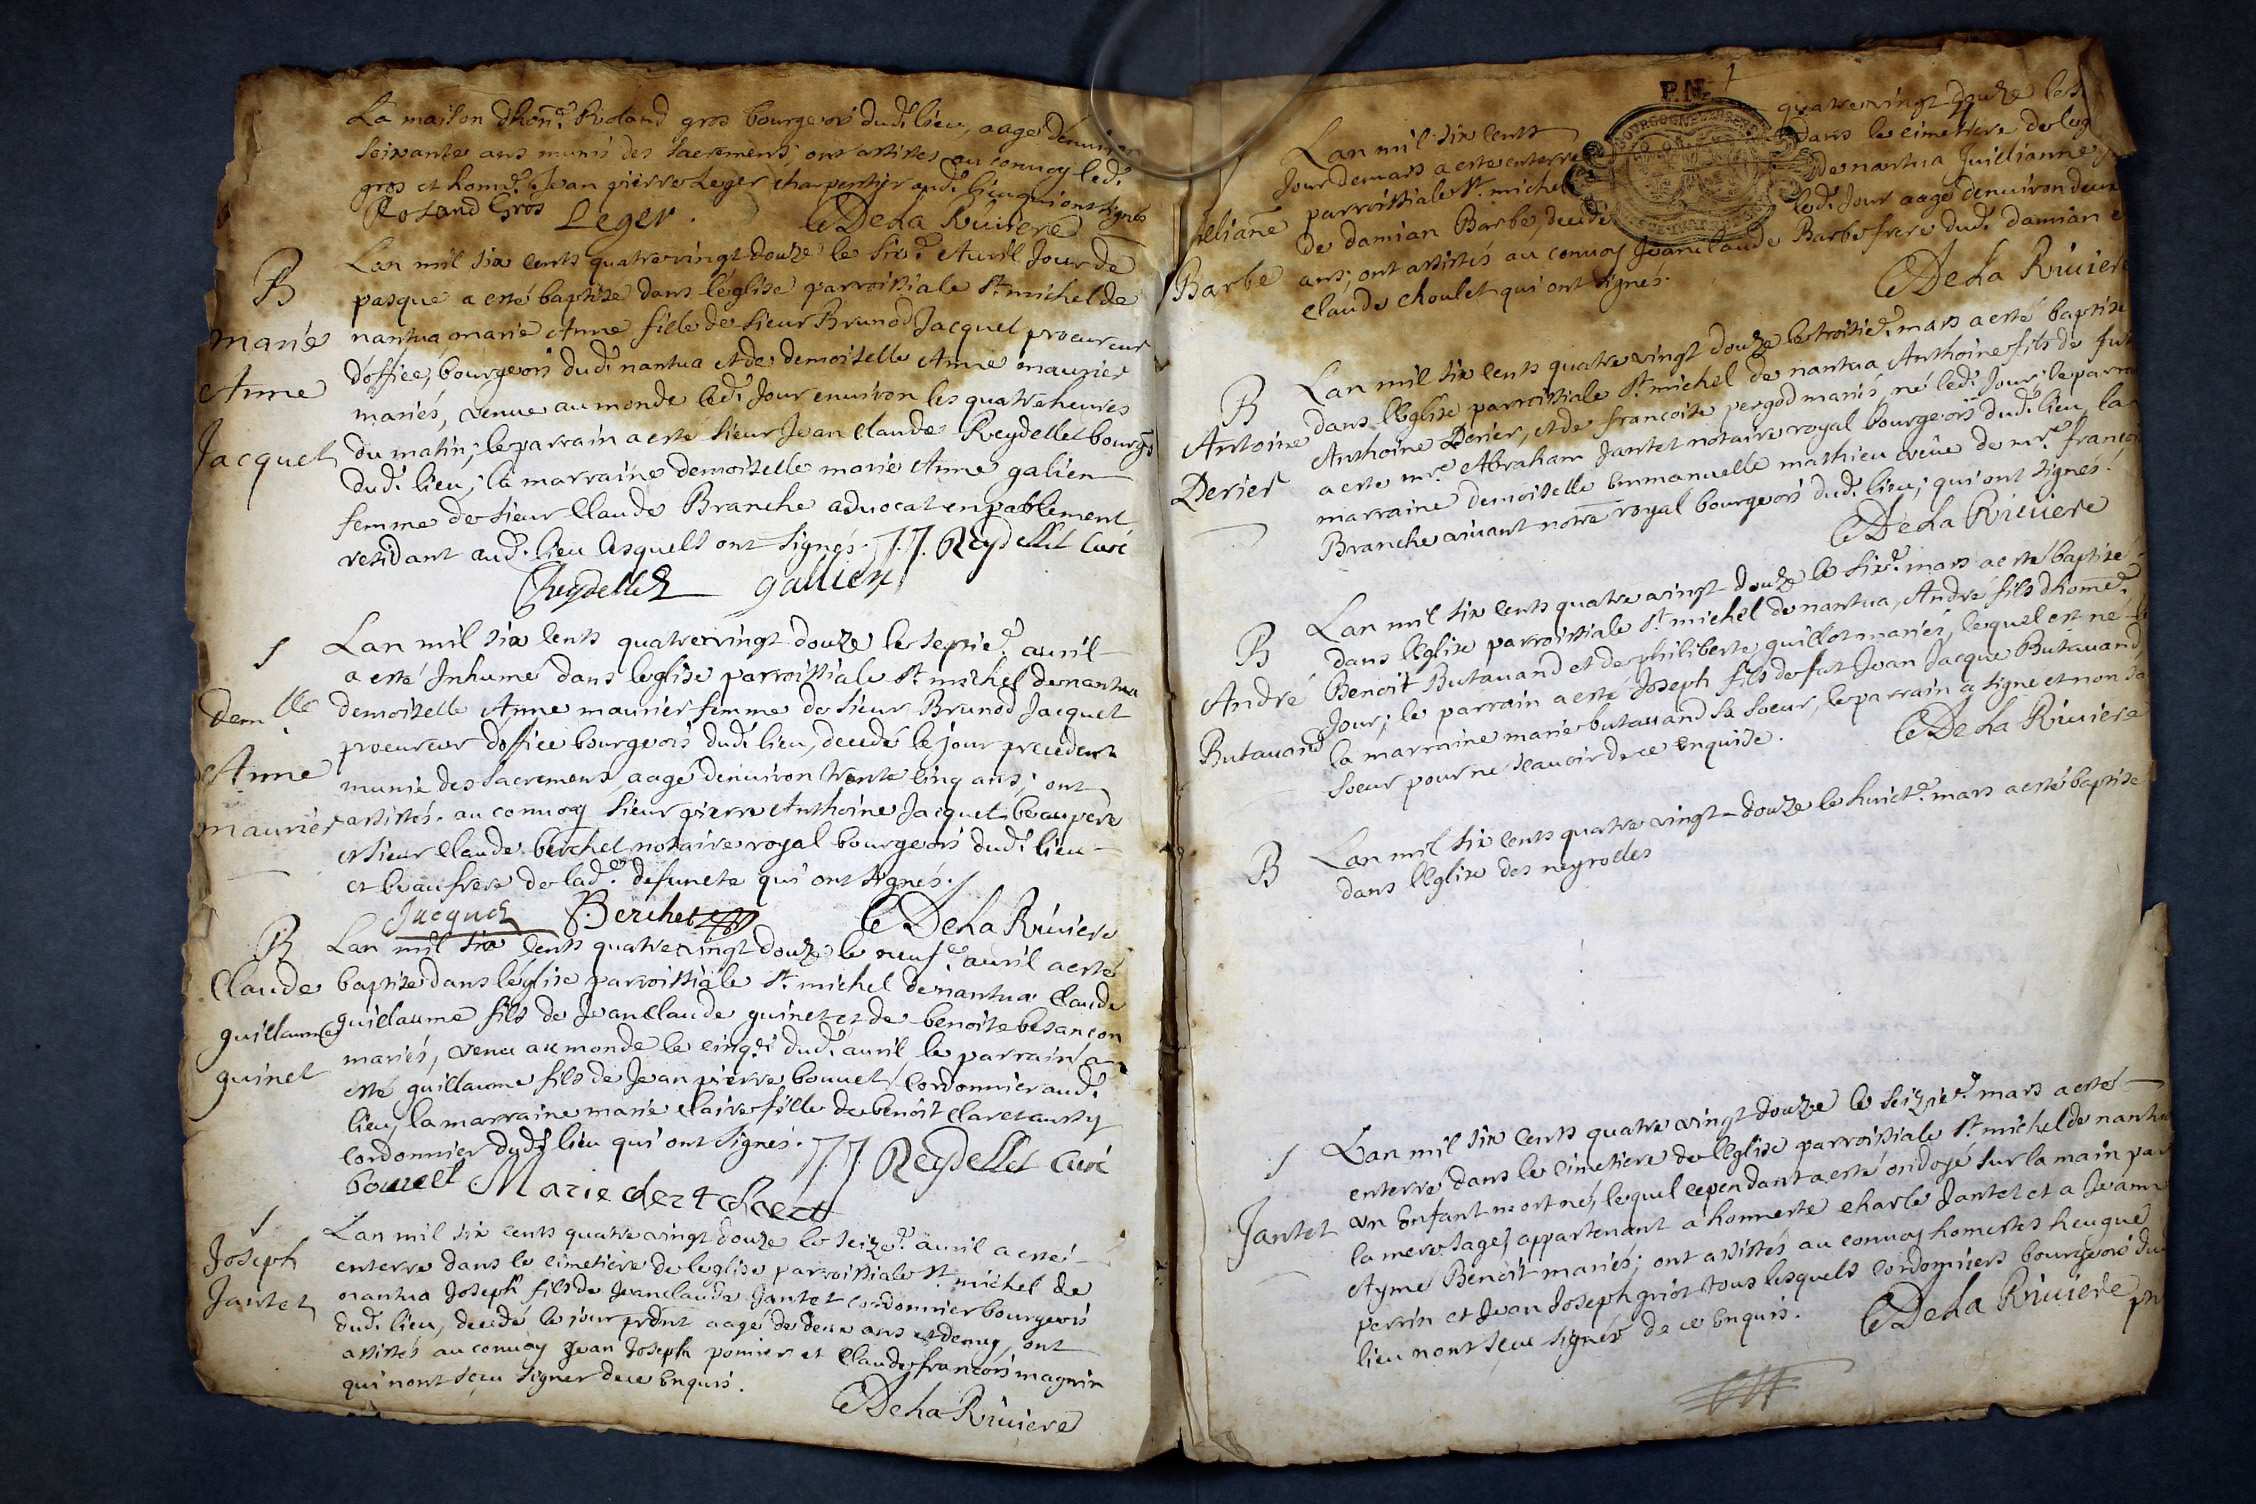 La maison dhon.e Roland gros bourgeois dud. lieu, aagé denuiron
soixante ans munis des sacremens, ont assistes au conuoy led.
gros et hono.e Jean pierre Leger charpentier aud. lieu qui ont signés
Roland Gros Leger. De la Riuiere
B
Marie
Anne
Jacquet
Lan mil six cents quatre vingt douze le six.e Auril Jour de
pasque a esté baptisé dans léglise parroissiale St. michel de
nantua marie Anne fille de sieur Brunod Jacquet procureur
d'office, bourgeois dud. nantua et de demoiselle Anne maurier
mariés, venue au monde led. Jour enuiron les quatre heures
du matin; le parrain a esté sieur Jean claude Reydellet bourgs
dud. lieu; la marraine demoiselle marie Anne galien
femme de sieur Claude Branche aduocat en parlement
residant aud. lieu lesquels ont signés. J.J. Reydellet Curé
Reydellet gallien
S
Dem.lle
Anne
maurier
Lan mil six cents quatre vingt douze le septie.e auril
a esté Inhumé dans leglise parroissiale St. michel de nantua
demoiselle Anne maurier femme de sieur Brunod Jacquet
procureur doffice bourgeois dud. lieu, decedé le jour precedent
munie des sacremens, aagé denuiron trente cinq ans; ont
assistés au conuoy sieur pierre Anthoine Jacquet beaupere
et sieur Claude berchet notaire royal bourgeois dud. lieu
et beaufrere de lad.e defuncte qui ont signés.
Jacquet Berchet De la Riuiere
B
Claude
guillaume
guinet
Lan mil six cents quatre vingt douze le neuf.e auril a esté
baptisé dans léglise parroissiale St. michel de nantua Claude
guillaume fils de Jean claude guinet et de benoite besançon
mariés, venu au monde le cinq.e dud. auril le parrain a
esté guillaume fils de Jean pierre bouuet cordonnier aud.
lieu, la marraine marie claire fille de benoit claret aussy
cordonnier dud. lieu qui ont signés. J.J. Reydellet Curé
bouuet Marie cler
S
Joseph
Jantet
Lan mil six cents quatre vingt douze le seize.e auril a esté
enterré dans le cimetiere de leglise parroissiale St. michel de
nantua Joseph fils de Jean claude Jantet cordonnier bourgeois
dud. lieu, decedé le jour prdnt aagé de deux ans et demy, ont
assistés au conuoy Jean Joseph ponier et Claude françois magnin
qui nont sçeu signer de ce enquis.
De la Riuiere
P.N.
S
Juliane
Barbe
Lan mil six cents quatre vingt douze le
Jour de mars a esté enterré dans le cimetiere de leg
parroissiale St. michel de nantua Juillianne
de damian Barbe, decedé led. Jour aagé denuiron deux
ans; ont assistés au conuoy Jean claude Barbe frere dud. damian e
claude choulet qui ont signés.
De la Riuiere
B
Antoine
Derier
Lan mil six cents quatre vingt douze le troisie.e mars a esté baptisé
dans lEglise parroissiale St. michel de nantua Anthoine fils de fut
Anthoine Derier, et de francoise pergod mariés, né led. Jour; le parra
a esté mr.e Abraham Jantet notaire royal bourgeois dud. lieu, la
marraine demoiselle Emmanuelle mathieu veüe de mr.e françoi
Branche viuant notre royal bourgeois dud. lieu; qui ont signés.
De la Riuiere
B
André
Butauand
Lan mil six cents quatre vingt douze le six.e mars a esté baptisé
dans lEglise parroissiale St. michel de nantua, André fils dhome.e
Benoit Butauand et de philiberte guillot mariés, lequel est né le
Jour; le parrain a esté Joseph fils de fut Jean Jacque Butauand,
la marraine marie butauand sa soeur, le parrain a signé et non sa
soeur pour ne scauoir de ce enquise.
De la Riuiere
B
Lan mil six cents quatre vingt douze le huict.e mars a esté baptisé
dans lEglise des neyrolles
S
Jantet
Lan mil six cents quatre vingt douze le seizie.e mars a esté
enterré dans le cimetiere de lEglise parroissiale St. michel de nantua
un Enfant mort né, lequel cependant a esté ondoyé sur la main par
la mere sage, appartenant a honneste charle Jantet et a Jeanne
Aymé Benoit mariés; ont assistés au conuoy homestes hengue
perrin et Jean Joseph griot tous lesquels cordonniers bourgeois dud
lieu nont sçeu signer de ce Enquis.
De la Riuiere